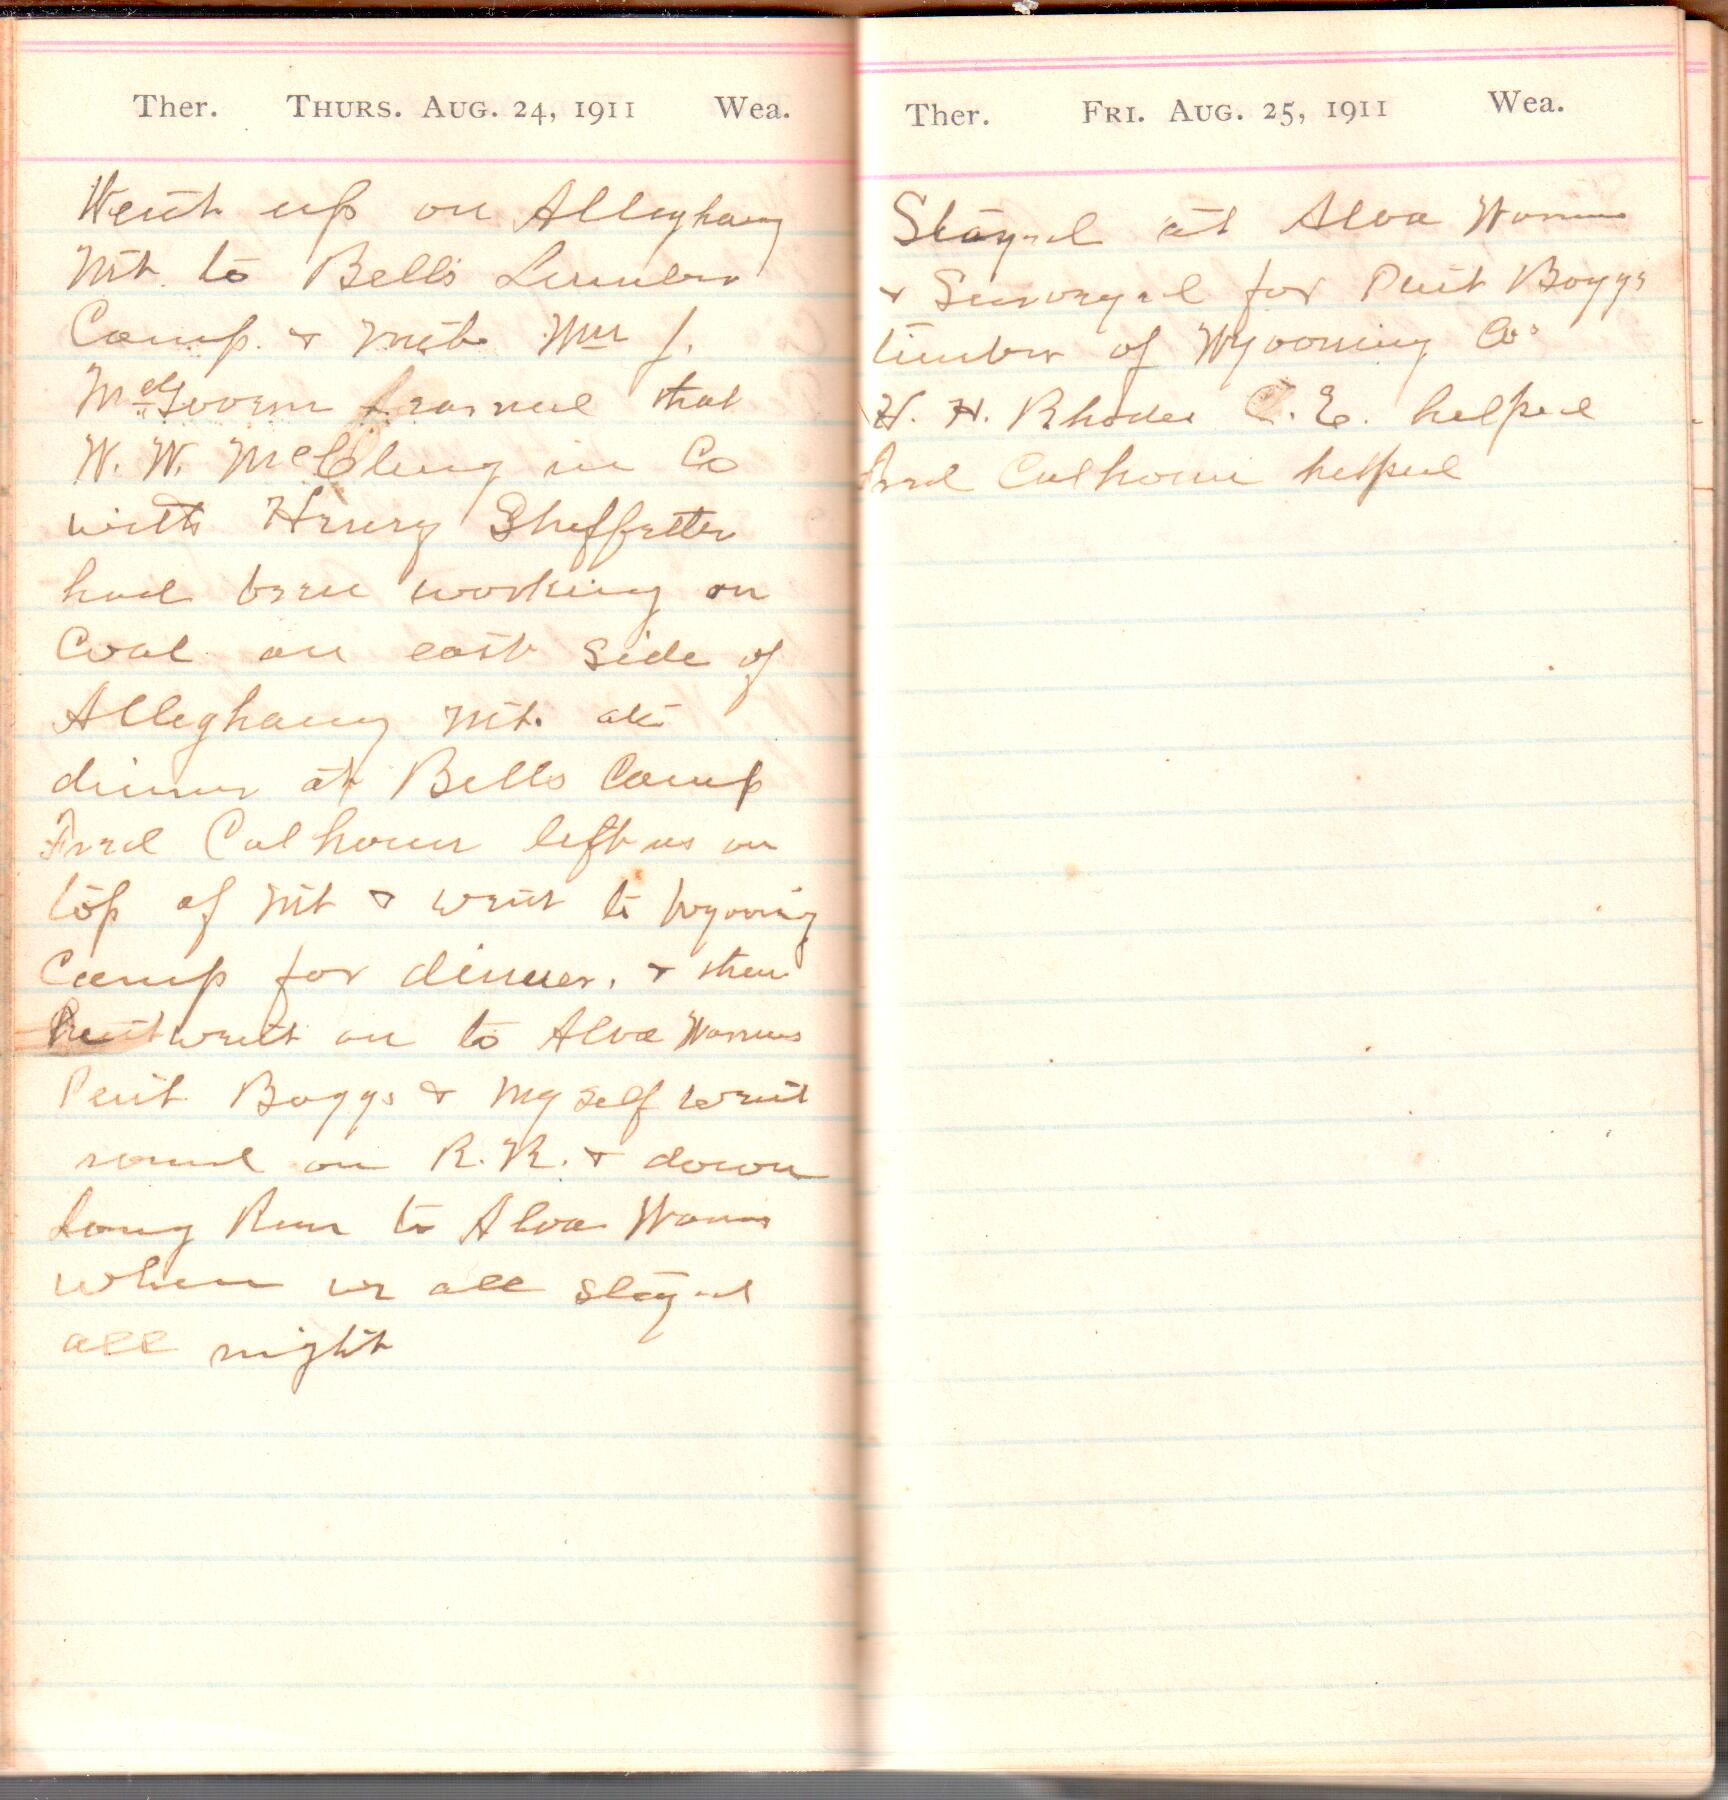 Ther. THURS. AUG. 24, 1911 Wea.
Went up on Alleghany
Mt. to Bells Lumber
Camp. & met Wm J.
McGovern Learned that
W. W. McClung in Co
with Henry Sheffetter
had been working on
Coal on east side of
Alleghany Mt. ate
dinner at Bells Camp
Fred Calhoun left us on
top of Mt & went to Wyoming
Camp for dinner. & then
went on to Alva
Pent Boggs & myself went
round on R.R. & down
Long Run to Alva
where we all stayed
all night
Ther. FRI. AUG. 25, 1911 Wea.
Stayed at Alva
& Surveyed for Pent Boggs
timber of Wyoming Co
H. H. Rhodes C. E. helped
Fred Calhoun helped